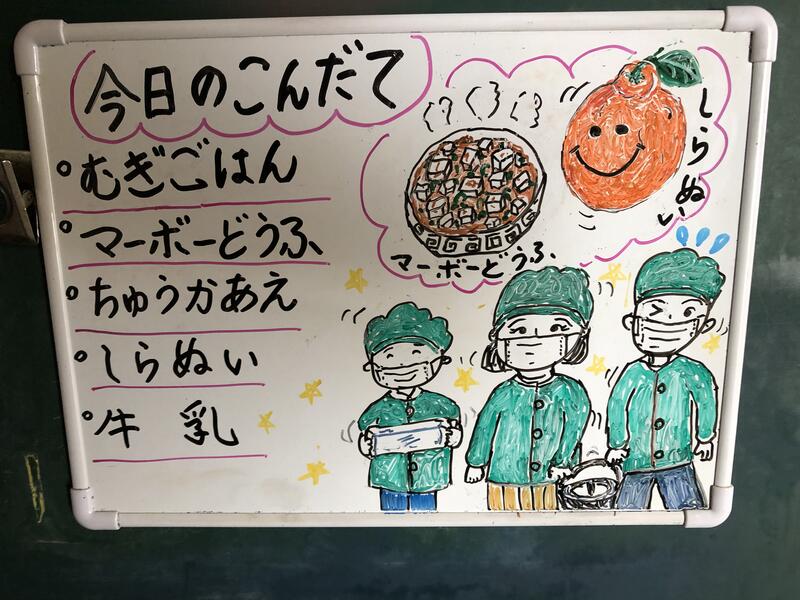 今日のこんだて
むぎごはん
マーボーどうふ
ちゅうかあえ
しらぬい
牛 乳
マーボーどうふ
しらぬい